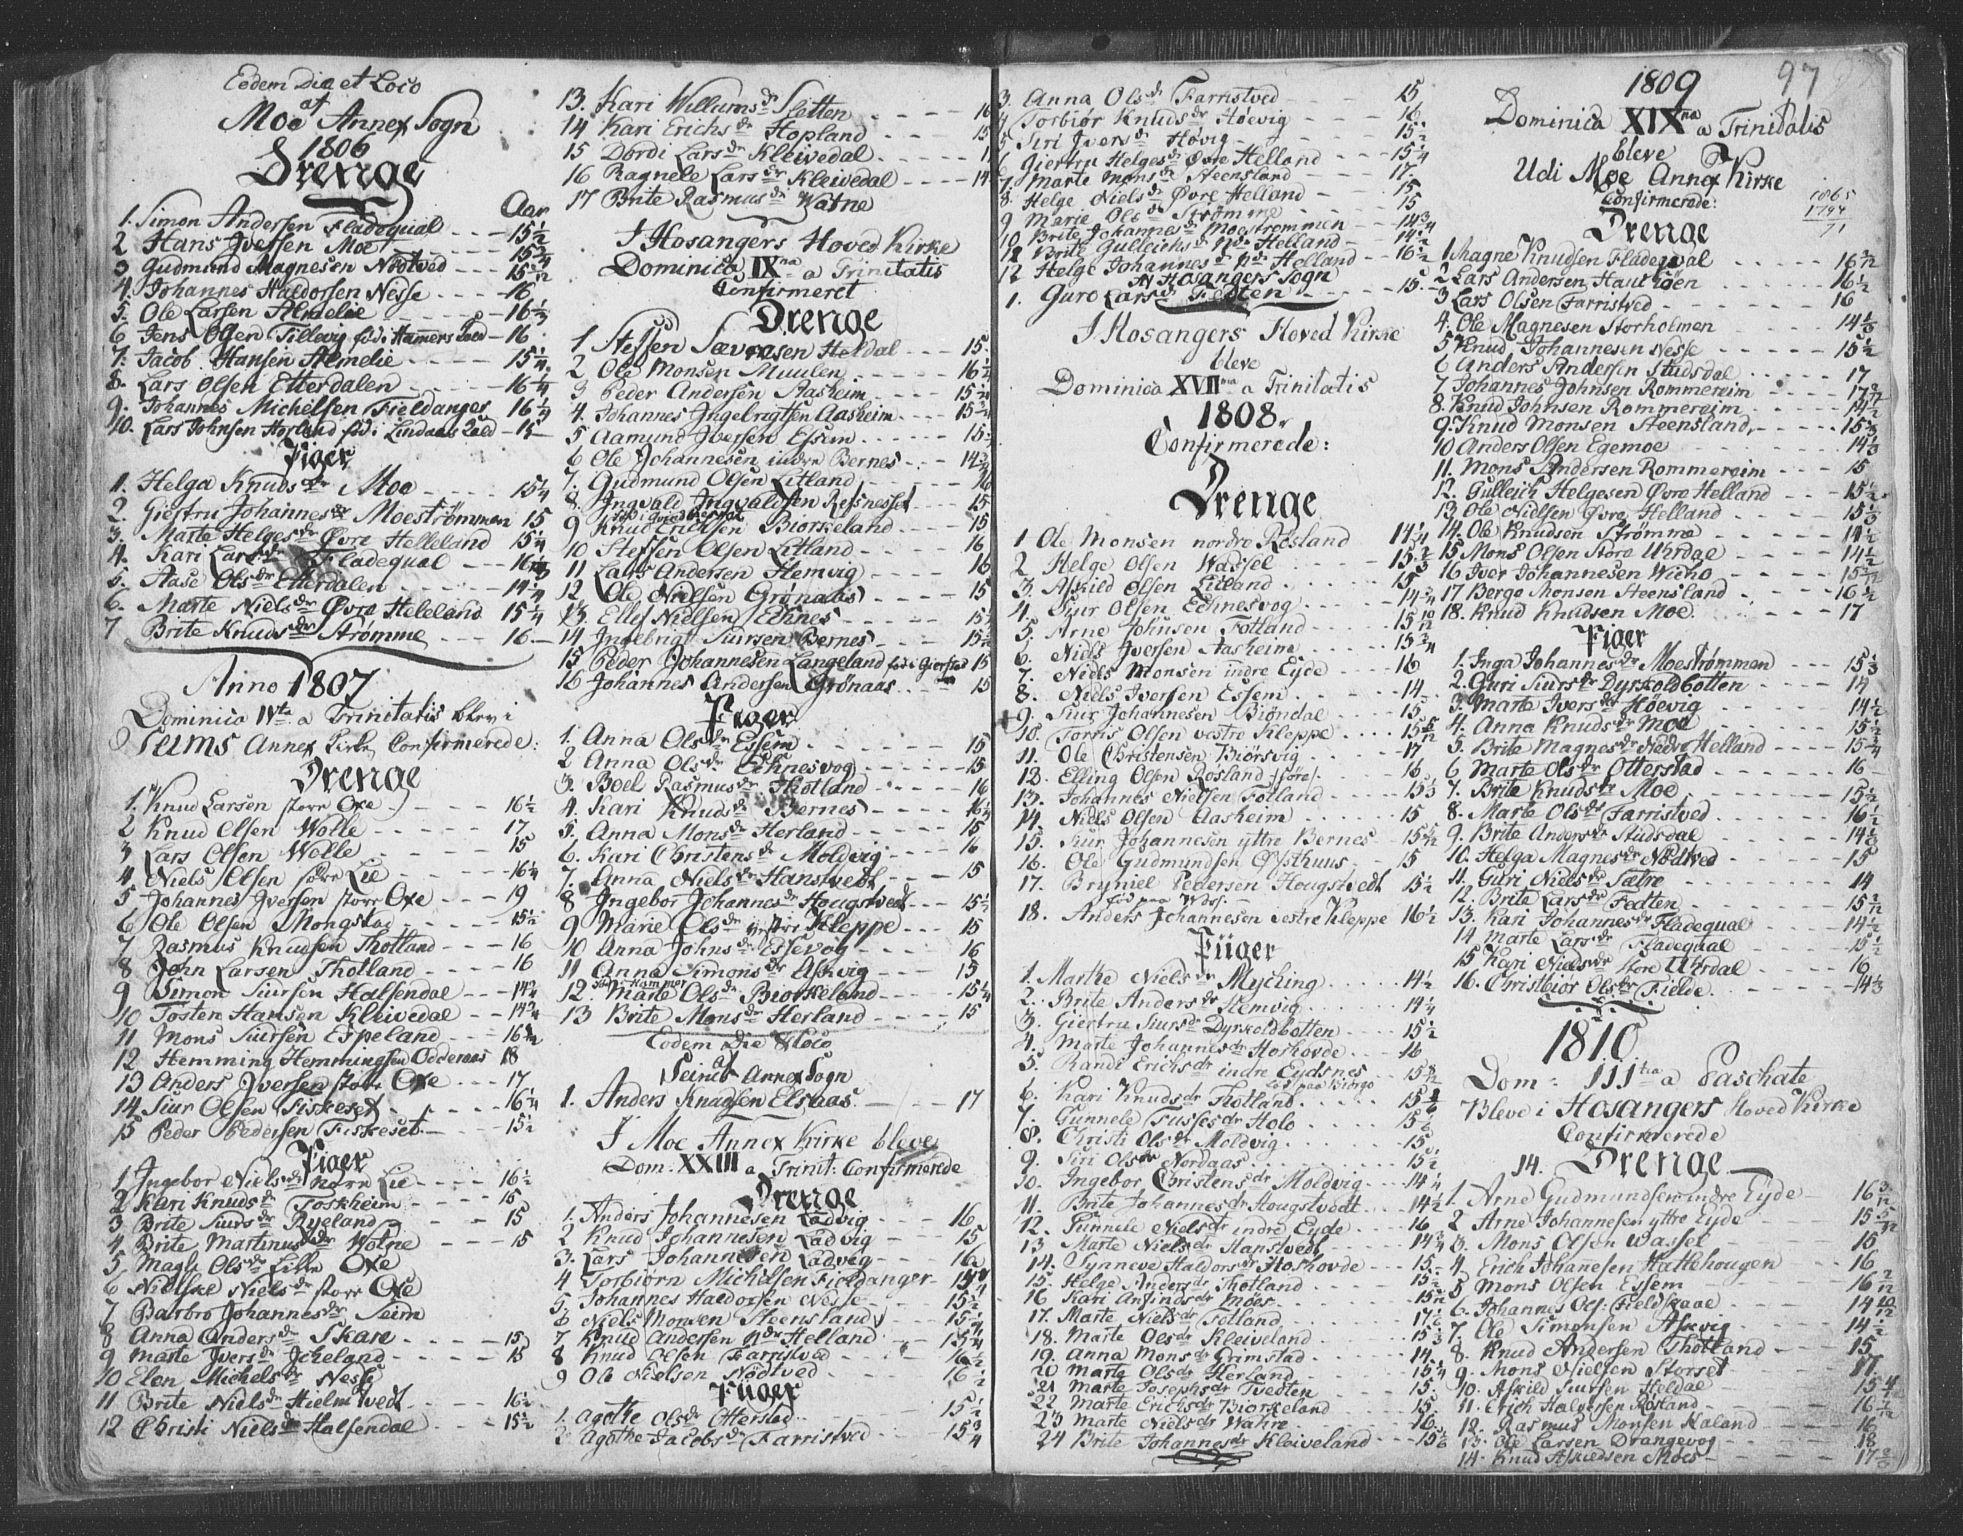 Eodem Die et Loco
af
Moe Annex Sogn
1806
Drenge
Aar
1. Simon Andersen Fladequal - - 15 1/2
2 Hans Iversen Moe - - 15 3/4
3 Gudmund Magnesen Nöötved - - 15
4. Johannes Haldorsen Nesse - - 16
5. Ole Larsen Hemelie - - 16 1/3
6 Jens Olsen Tillevig - 16
7. Jacob Hansen Hemelie - - 15
8. Lars Olsen Etterdalen - - 16 1/4
9. Johannes Michelsen Fieldanger 16 1/4
10. Lars Johnsen Horland fød i Lindaas - 15
Piger
1. Helga Knudsdr Moe - - 15 1/4
2. Giertru Johannesdr Moeströmmen 15
3. Marte Helgesdr Øvre Helleland 15
4. Kari Larsdr Fladequal - -
5. Aase Olsdr Etterdalen - - 14
6. Marte Nielsdr Øvre Heleland 15 1/4
7 Brite Knudsdr Strömme - - 16
Anno 1807
Dominica IVta a Trinitatis blev i
Seims Annex Kirke Confirmerede:
Drenge
1. Knud Larsen store Oxe - - 16 1/2
2 Knud Olsen Wolle - - 17
3 Lars Olsen Wolle - - 15
4 Niels Olsen Lie - - 16 1/4
5 Johannes Iversen store Oxe - - 19
6 Ole Olsen Mongstad - - 15 1/2
7 Rasmus Knudsen Thotland - - 16
8 John Larsen Thotland - - 16
9 Simon Siursen Halsendal - - 14
10 Tosten Hansen Kleivedal - - 14
11 Mons Siursen Espeland - - 16
12 Hemming Hemmingsen Odderaas 18
13 Anders Iversen store Oxe - - 17
14 Siur Olsen Fiskeset - - 16 1/4
15 Peder Pedersen Fiskeset - - 15 1/2
Piger
1 Ingebor Nielsdr Lie - - 16 1/2
2 Kari Knudsdr Foskheim - - 15
3 Brite Siursdr Ryeland - - 15
4 Brite Martinusdr Wolne - - 15
5 Magli Olsdr Lille Oxe
6 Nielske Nielsdr store Oxe
7 Barbro Johannesdr Seim
8 Anna Andersdr Skare - - 15
9 Marte Iversdr Ickeland - - 15
10 Elen Michelsdr Nesse
11 Brite Nielsdr Hielmtvedt - - 16 1/2
12 Christi Nielsdr Halsendal - - 15 1/2
13. Kari Willumsdr Sletten - - 16
14 Kari Erichsdr Hopland - - 15
15 Dordi Larsdr Kleivedal - -
16 Ragnele Larsdr Kleivedal - - 14
17 Brite Rasmusdr Watne
I Hosangers Hoved Kirke
Dominica IXna a Trinitatis
Confirmeret
Drenge
1 Steffen Sævrasen Heldal - - 15
2 Ole Monsen Muulen - - 16 1/4
3 Peder Andersen Aasheim - - 15
4. Johannes Ingebrigtsen Aasheim - - 15 3/4
5 Aamund Iversen Essem - - 15
6 Ole Johannesen indre Bernes - - 14
7. Gudmund Olsen Litland - - 16
8. Ingvald Ingvaldsen Refsnesset - - 15
9 Knud Erichsen Biorkeland - - 15
10 Steffen Olsen Litland - - 16
11 Lars Andersen Hemvig - - 16
12 Ole Nielsen Grönaas - - 15
13 Ellef Nielsen Echnes - - 15
14 Ingebrigt Siursen Bernes - - 15
15 Peder Johannesen Langeland 15
16 Johannes Andersen Grönaas - - 15
Piger
1. Anna Olsdr Essem - - 15
2 Anna Olsdr Echnesvog - - 15
3. Boel Rasmusdr Thotland - - 16
4. Kari Knudsdr Bernes - - 16
5. Anna Monsdr Herland - - 15
6. Kari Christensdr Moldvig - - 16
7. Anna Nielsdr Hanstvedt - - 15
8 Ingebor Johannesdr Hougstvedt - - 15 1/2
9 Marie Olsdr vestre Kleppe - - 15
10 Anna Johnsdr Essevog - - 16
11 Anna Simonsdr Askvig - - 15
12. Marte Olsdr Biorkeland - - 15 1/4
13 Brite Monsdr Herland - - 15
Eodem Die & Loco
af
Seims Annex Sogn
1. Anders Knudsen Elsaas - - 17
I Moe Annex Kirke bleve
Dom. XXIII a Trinit: Confirmerede
Drenge
1. Anders Johannesen Ladvig - - 16
2 Knud Johannesen Ladvig - - 15
3. Lars Johannesen Ladvig - - 16
4 Torbiörn Michelsen Fieldanger - -
5. Johannes Haldorsen Nesse - - 15 1/2
6 Niels Monsen Steensland - - 15
7 Knud Andersen Ndr Helland - - 15
8 Knud Olsen Farristved - -
9 Ole Nielsen Nödtved - - 16 1/2
Piger
1. Agothe Olsdr Otterstad - - 15 1/2
2 Agothe Jacobsdr Farristved - - 15 3/4
3. Anna Olsdr Farristved - - 15
4 Torbior Knudsdr Høevig - - 16
5 Siri Iversdr Høvig - - 15 1/2
6 Giertru Helgesdr Øvre Helland - - 15 1/4
7. Marte Monsdr Steensland - - 17
8 Helge Nielsdr Øvre Helland - - 15
9 Marie Olsdr Strømme - - 15
10. Brite Johannesdr Moestremmen - - 14 3/4
11 Brite Gulleichsdr Ndr Helland - - 14 1/2
12 Helge Johannesdr Ndr Helland - - 16 1/2
Af Hosangers Sogn
1. Guro Larsdr Festen - - 15
I Hosangers Hoved Kirke
bleve
Dominica XVIIma a Trinitatis
1808.
Confirmerede:
Drenge
1 Ole Monsen nordre Rosland 14 1/4
2 Helge Olsen Wassel - - 15 2/3
3. Askild Olsen Litland - - 15
4. Siur Olsen Echnesvog - - 14 3/4
5. Arne Johnsen Totland - - 15 10/12
6. Niels Iversen Aasheim - - 15 3/4
7. Niels Monsen indre Eyde - - 16
8. Niels Iversen Essem - - 14
9. Siur Johannesen Biöndal - - 15
10. Torris Olsen vestre Kleppe - - 15
11. Ole Christensen Biörsvig - - 17
12. Elling Olsen Rosland - - 16
13. Johannes Nielsen Totland - - 15
14. Niels Olsen Aasheim - - 15
15. Siur Johannesen yttre Bernes - - 15
16. Ole Gudmundsen Øysthuus - - 15
17. Bryniel Pedersen Hougstvedt 15 1/2
18. Anders Johannesen vestre Kleppe 16 1/2
Piiger
1. Marthe Nielsdr Mycling - - 14 1/2
2. Brite Andersdr Hemvig - - 14 1/4
3. Giertru Siursdr Dyrkoldbotten - - 15 1/2
4. Marte Johannesdr Hoshovde - - 16
5. Randi Erichsdr indre Eydsnes - - 15
6. Kari Knudsdr Thotland - - 15
7. Gunnele Tussesdr Holo - - 15
8. Christi Olsdr Moldvig - - 15
9. Siri Olsdr Nordaas - - 15 1/2
10. Ingebor Christensdr Moldvig - - 14 1/4
11. Brite Johannesdr Hougstvedt - - 14 1/2
12. Gunnele Nielsdr indre Eyde - - 16
13 Marte Nielsdr Hanstvedt - - 14 3/4
14. Synneve Haldorsdr Hoshovde - - 15
15. Helge Andersdr Thotland - - 15
16 Kari Anfindsdr Moes - - 15
17. Marte Nielsdr Totland - - 17
18. Marte Olsdr Kleiveland - - 15
19. Anna Monsdr Grimstad - - 14
20 Marte Olsdr Herland - - 15 1/4
21 Marte Josephsdr Tvedten - - 15
22 Marte Erichsdr Biorkeland - - 15
23 Marte Nielsdr Wahre - - 16
24 Brite Johannesdr Kleiveland - - 15 1/6
97
1809
Dominica XIXna a Trinitatis
bleve
Udi Moe Annex Kirke
Confirmerede:
1865
1794
71
Drenge
1 Magne Knudsen Fladequal - - 16
2 Lars Andersen Haukaaen - - 16 1/2
3 Lars Olsen Farristved - - 16
4. Ole Magnesen Storholmen - - 14 1/3
5 Knud Johannesen Nesse - - 15 1/2
6 Anders Andersen Studsdal - - 17
7 Johannes Johnsen Rommereim - - 17
8. Knud Johnsen Rommereim - - 14 1/2
9. Knud Monsen Steensland - - 15 2/3
10 Anders Olsen Egemoe - - 14 1/3
11. Mons Andersen Rommereim - - 15
12. Gulleich Helgesen Øvre Helland - - 15 1/2
13 Ole Nielsen Øvre Helland - - 15 1/3
14. Ole Knudsen Strömme - - 14 1/2
15 Mons Olsen Store Uhrdal - - 14 1/2
16 Iver Johannesen Wicho - - 15
17 Berge Monsen Steensland - - 16 1/2
18. Knud Knudsen Moe - - 17
Piger
1. Inga Johannesdr Moeströmmen - - 15 1/3
2. Guri Siursdr Dyrkoldbotten - - 14
3. Marte Iversdr Høevig - - 14 1/2
4. Anna Knudsdr Moe - - 15 1/2
5. Brite Magnesdr Nedre Helland - - 15
6. Marte Olsdr Otterstad - - 16
7. Brite Knudsdr Moe - - 15 1/2
8. Marte Olsdr Farristved - - 16 1/2
9. Brite Andersdr Studsdal - - 14
10. Helga Magnesdr Nödtved - - 15
11. Guri Nielsdr Sætre - - 14
12. Brite Larsdr Festen - - 15
13. Kari Johannesdr Fladequal - - 14 1/2
14 Marte Larsdr Fladequal - - 15 1/2
15 Kari Nielsdr store Uhrdal - - 16
16. Christbior Olsdr Fielde - - 14 1/3
1810
Dom: IIItia a Paschate
Bleve i Hosangers Hoved Kirke
Confirmerede
14. Drenge
1. Arne Gudmundsen indre Eyde - - 16
2 Arne Johannesen yttre Eyde - - 15
3. Mons Olsen Wassel - - 15
4. Erich Johanesen Hattehougen - - 16
5 Mons Olsen Essem - - 16
6. Johannes Ols: Fieldskaal - - 14 10/12
7. Ole Simonsen Askvig - - 14 1/2
8. Knud Andersen Thotland - - 15
9. Mons Nielsen Storset - - 17
10. Askild Siursen Heldal - - 15
11. Erich Halversen Rosland - - 16
12. Rasmus Monsen Kaland - - 16
13. Ole Larsen Drangevog - - 18
14. Knud Askieldsen Moes - - 17